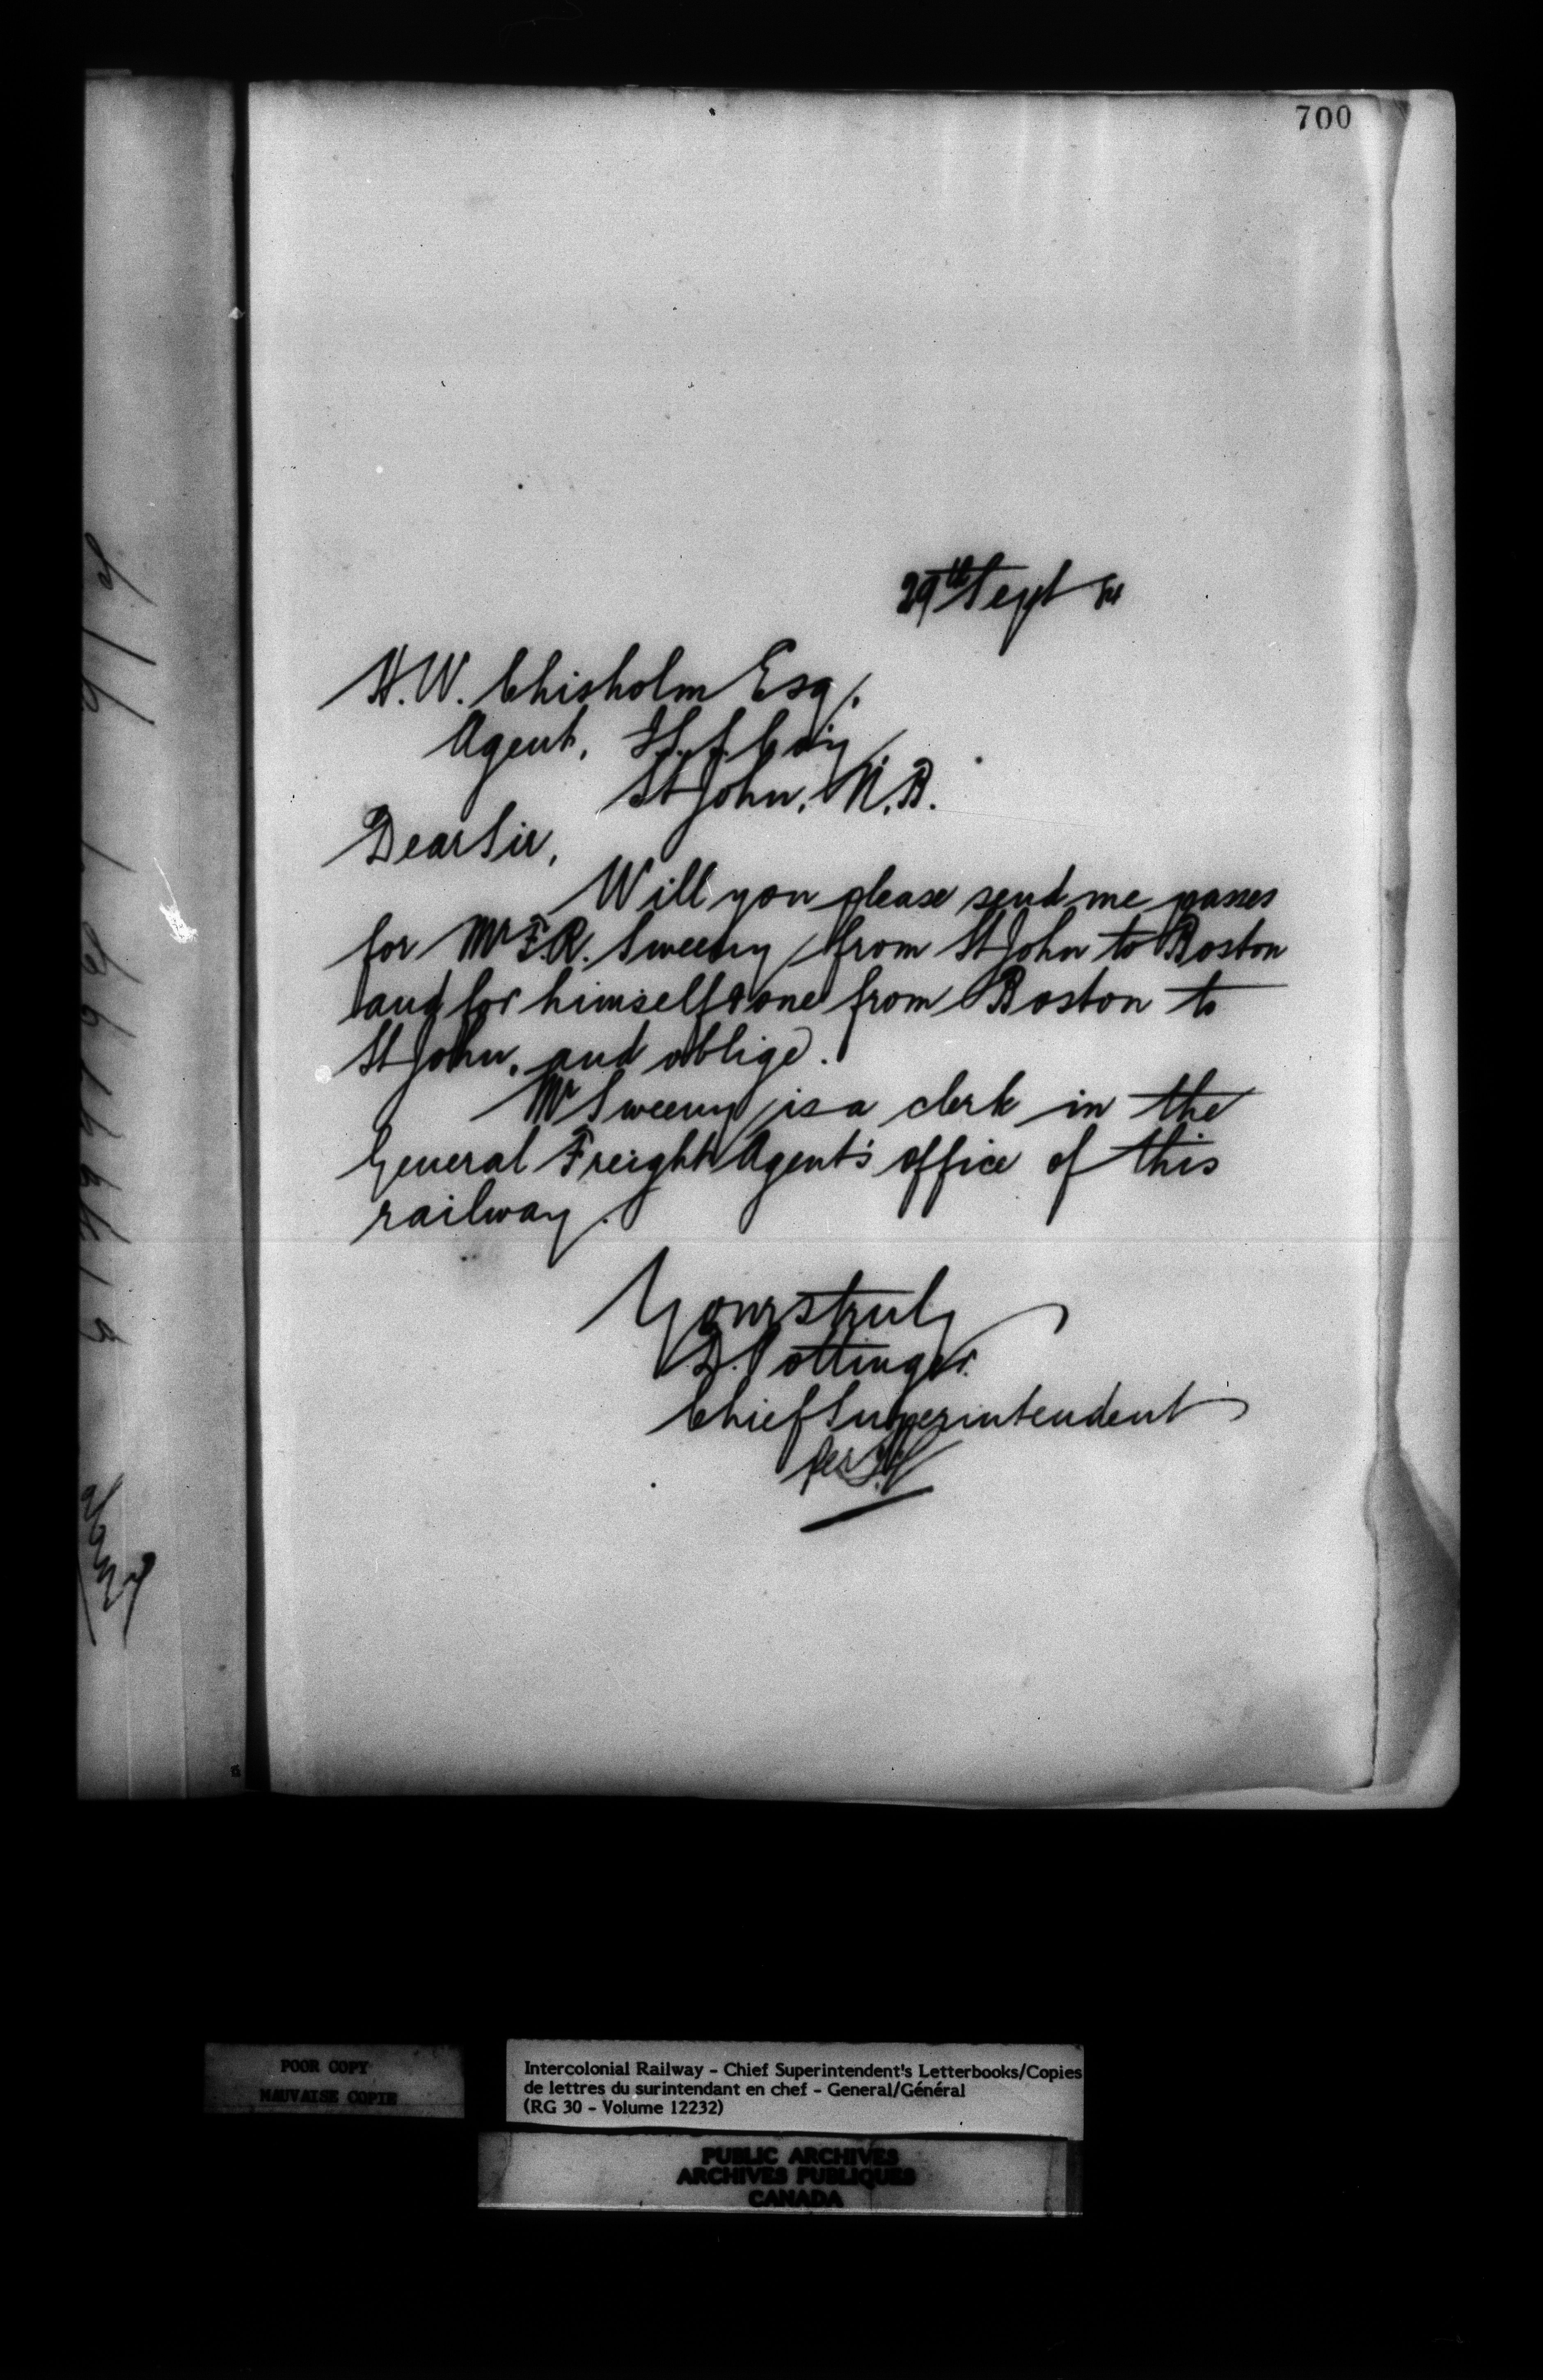 700
29th Sept 84
H. W. Chisholm Esq.
Agent, I. S. S. Coy
St John, N.B.
Dear Sir,
Will you please send me passes
for Mr F. R. Sweeny from St John to Boston
and for himself & one from Boston to
St John, and oblige.
Mr Sweeny is a clerk in the
General Freight Agent's office of this
railway.
Yours truly
D. Pottinger
Chief Superintendent
per
POOR COPY
MAUVAISE COPIE
Intercolonial Railway - Chief Superintendent's Letterbooks/Copies
de lettres du surintendant en chef - General/Général
(RG 30 - Volume 12232)
PUBLIC ARCHIVES
ARCHIVES PUBLIQUES
CANADA